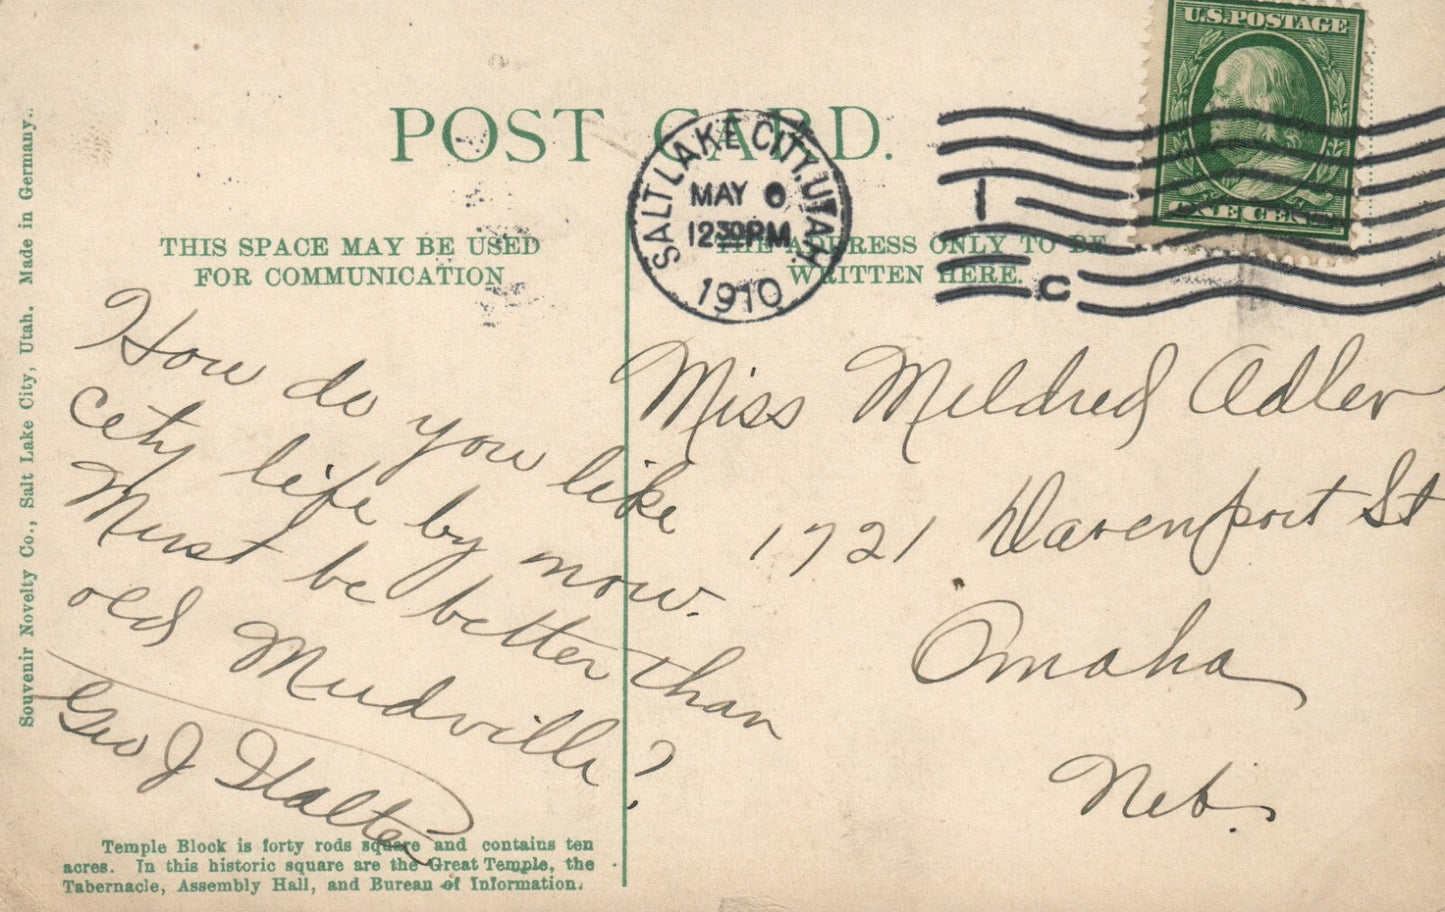 U.S.POSTAGE
ONE CENT
POST CARD.
SALT LAKE CITY, UTAH.
MAY 6
1230PM
1910
1
C
THIS SPACE MAY BE USED
FOR COMMUNICATION
THE ADDRESS ONLY TO BE
WRITTEN HERE.
How do you like
city life by now.
Must be better than
old Mudville?
Geo J Halter
Miss Mildred Adler
1721 Davenport St
Omaha
Neb.
Souvenir Novelty Co., Salt Lake City, Utah. Made in Germany.
Temple Block is forty rods square and contains ten
acres. In this historic square are the Great Temple, the
Tabernacle, Assembly Hall, and Bureau of Information.